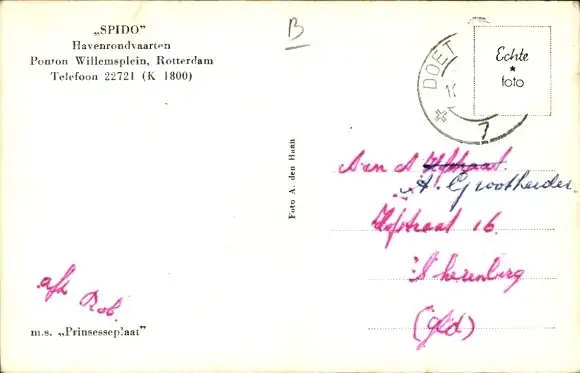 „SPIDO”
Havenrondvaarten
Ponton Willemsplein, Rotterdam
Telefoon 22721 (K 1800)
B
DOET
Echte
★
foto
7
Foto A. den Haan
Aan A Hofstraat.
A. Grootheider.
Hofstraat 16
's herenberg
(gld)
afz Rob.
m.s. „Prinsesseplaat”